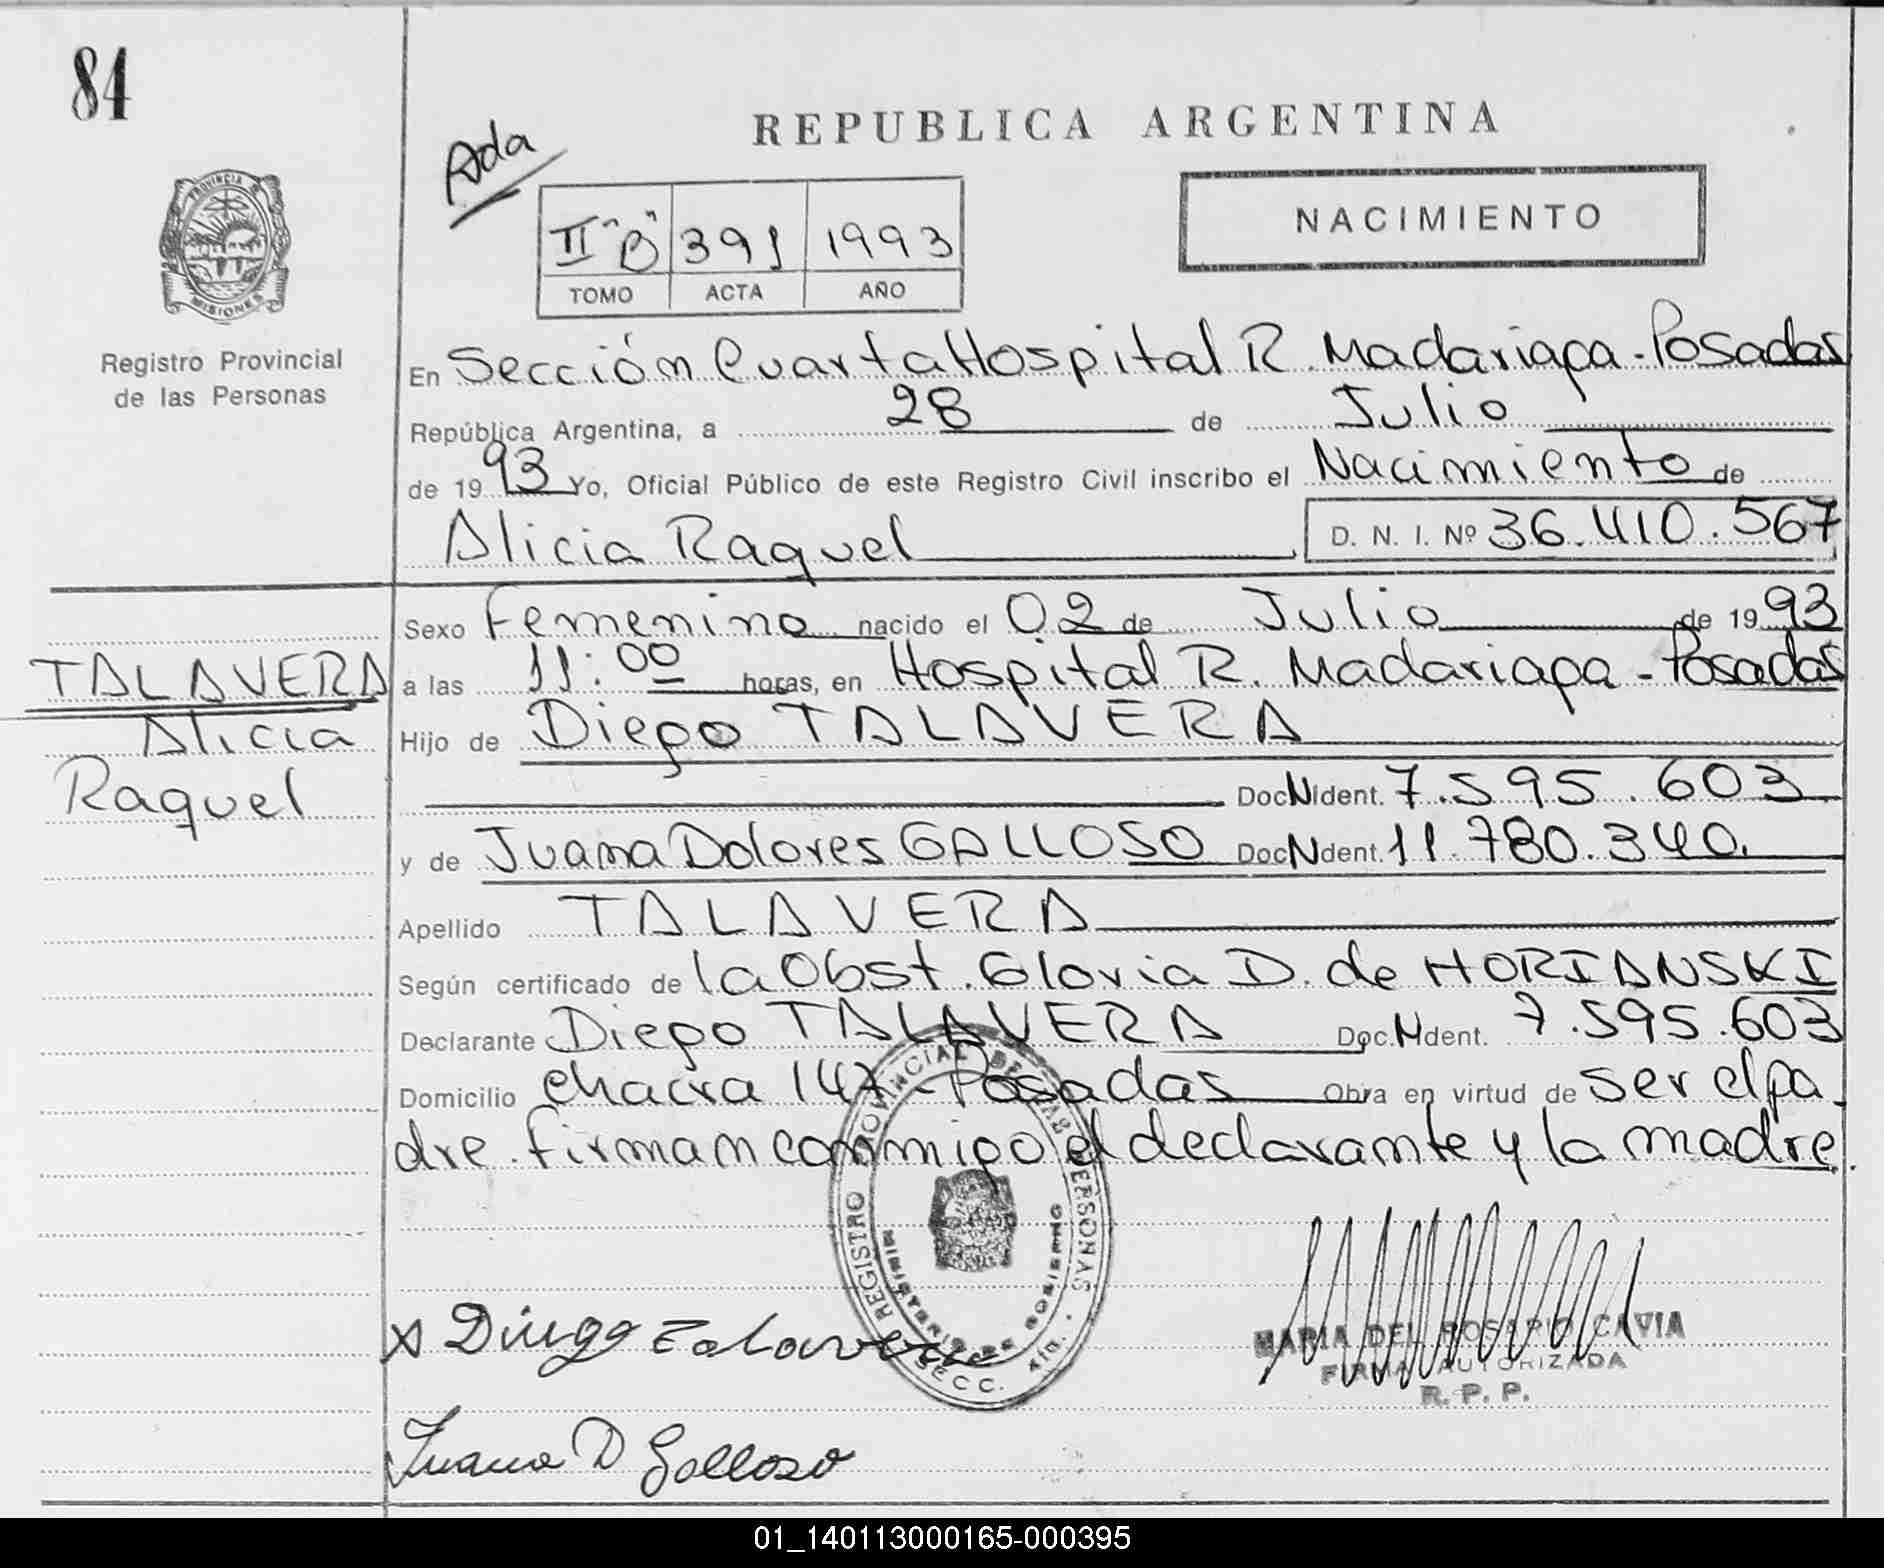 84
REPUBLICA ARGENTINA
Ada
NACIMIENTO
II "B" 391 1993
TOMO ACTA AÑO
PROVINCIA DE
MISIONES
Registro Provincial
de las Personas
En Sección Cuarta Hospital R. Madariaga - Posadas
República Argentina, a 28 de Julio
de 1993 Yo, Oficial Público de este Registro Civil inscribo el Nacimiento de
Alicia Raquel D. N. I. Nº 36.410.567
Sexo Femenino nacido el 02 de Julio de 1993
TALAVERA
Alicia
Raquel
a las 11:00 horas, en Hospital R. Madariaga - Posadas
Hijo de Diego TALAVERA
Doc N Ident. 7.595.603
y de Juana Dolores GALLOSO Doc N Ident. 11.780.340.
Apellido TALAVERA
Según certificado de la Obst. Gloria D. de HORIANSKI
Declarante Diego TALAVERA Doc. N Ident. 7.595.603
Domicilio chacra 147 - Posadas Obra en virtud de ser el pa
dre. firman conmigo el declarante y la madre.
REGISTRO PROVINCIAL DE LAS PERSONAS
MINISTERIO DE GOBIERNO
SECC. 4ta.
x Diego Talavera
MARIA DEL ROSARIO CAVIA
FIRMA AUTORIZADA
R. P. P.
Juana D Galloso
01_140113000165-000395